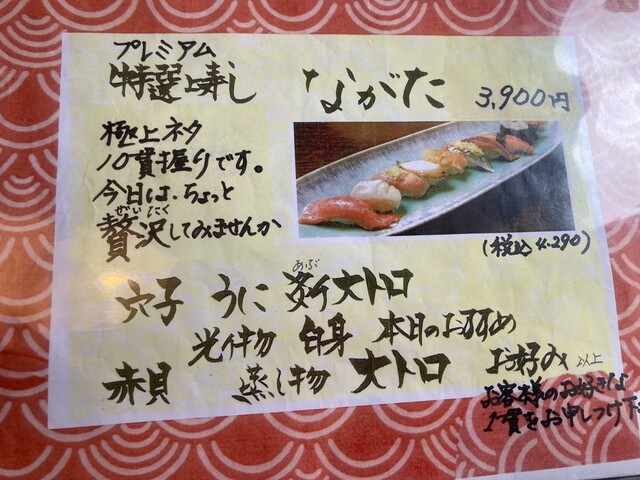 プレミアム
特選上寿し ながた 3,900円
極上ネタ
10貫握りです。
今日は、ちょっと
ぜいたく
贅沢してみませんか
(税込 4,290)
あぶ
穴子 うに 炙り大トロ
光り物 白身 本日のおすすめ
赤貝 蒸し物 大トロ お好み 以上
お客様のお好きな
1貫をお申しつけ下